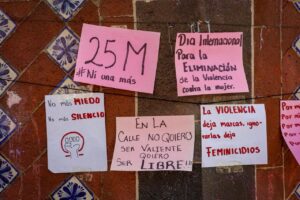 25 M
#Ni una más
Dia Internacional
Para la
ELIMINACIÓN
de la Violencia
contra la mujer.
No más MIEDO
No más SILENCIO
EN LA
CALLE NO QUIERO
SER VALIENTE
QUIERO
SER LIBRE!!
LA VIOLENCIA
deja marcas, igno-
rarlas deja
FEMINICIDIOS
Por m
Por mi